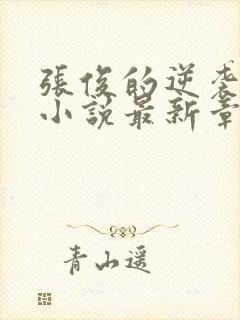 張俊的逆袭
小說最新章
青山遥